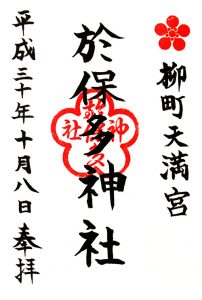 柳町天満宮
於保多神社
平成三十年十月八日奉拝